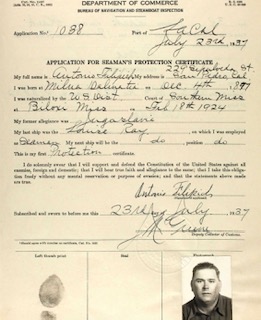 DEPARTMENT OF COMMERCE
BUREAU OF NAVIGATION AND STEAMBOAT INSPECTION
Application No. 1088 Port of La Cal
July 23rd 1937
APPLICATION FOR SEAMAN'S PROTECTION CERTIFICATE
My full name is Antonio address is San Pedro Cal
I was born at Milna Dalmatia on Dec 4th 1897
I was naturalized by the U S Dist Court of Southern Miss
at Biloxi Miss on Feb 18th 1924
My former allegiance was Jugoslavia
My last ship was the Louise, on which I was employed
as Seaman My next ship will be the do as do
This is my first Protection certificate.
I do solemnly swear that I will support and defend the Constitution of the United States against all
enemies, foreign and domestic; that I will bear true faith and allegiance to the same; that I take this
obligation freely without any mental reservation or purpose of evasion; and that the statements above made
Antonio
Subscribed and sworn to before me this 23rd day July 1937
Deputy Collector of Customs.
Left thumb print Seal Photograph